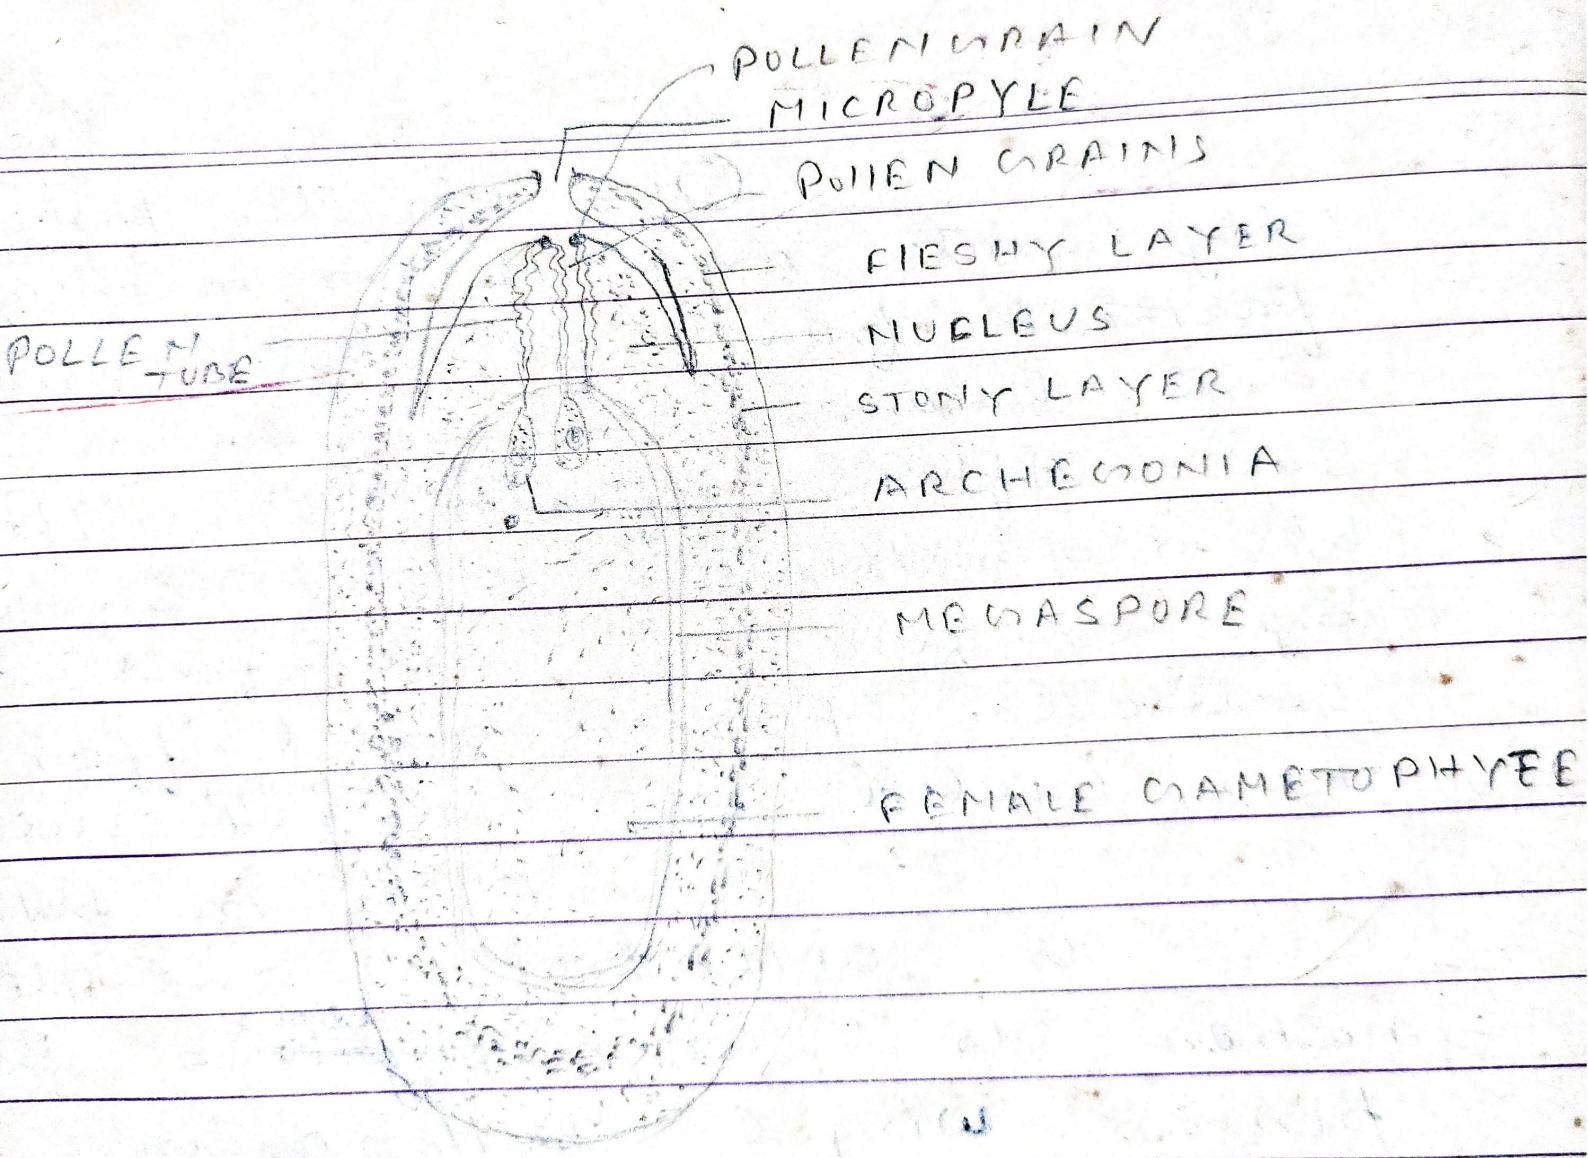 POLLEN GRAIN
MICROPYLE
POllEN GRAINS
FlESHY LAYER
NUCLEUS
POLLEN
TUBE
STONY LAYER
ARCHEGONIA
MEGASPORE
FEMALE GAMETOPHYTE